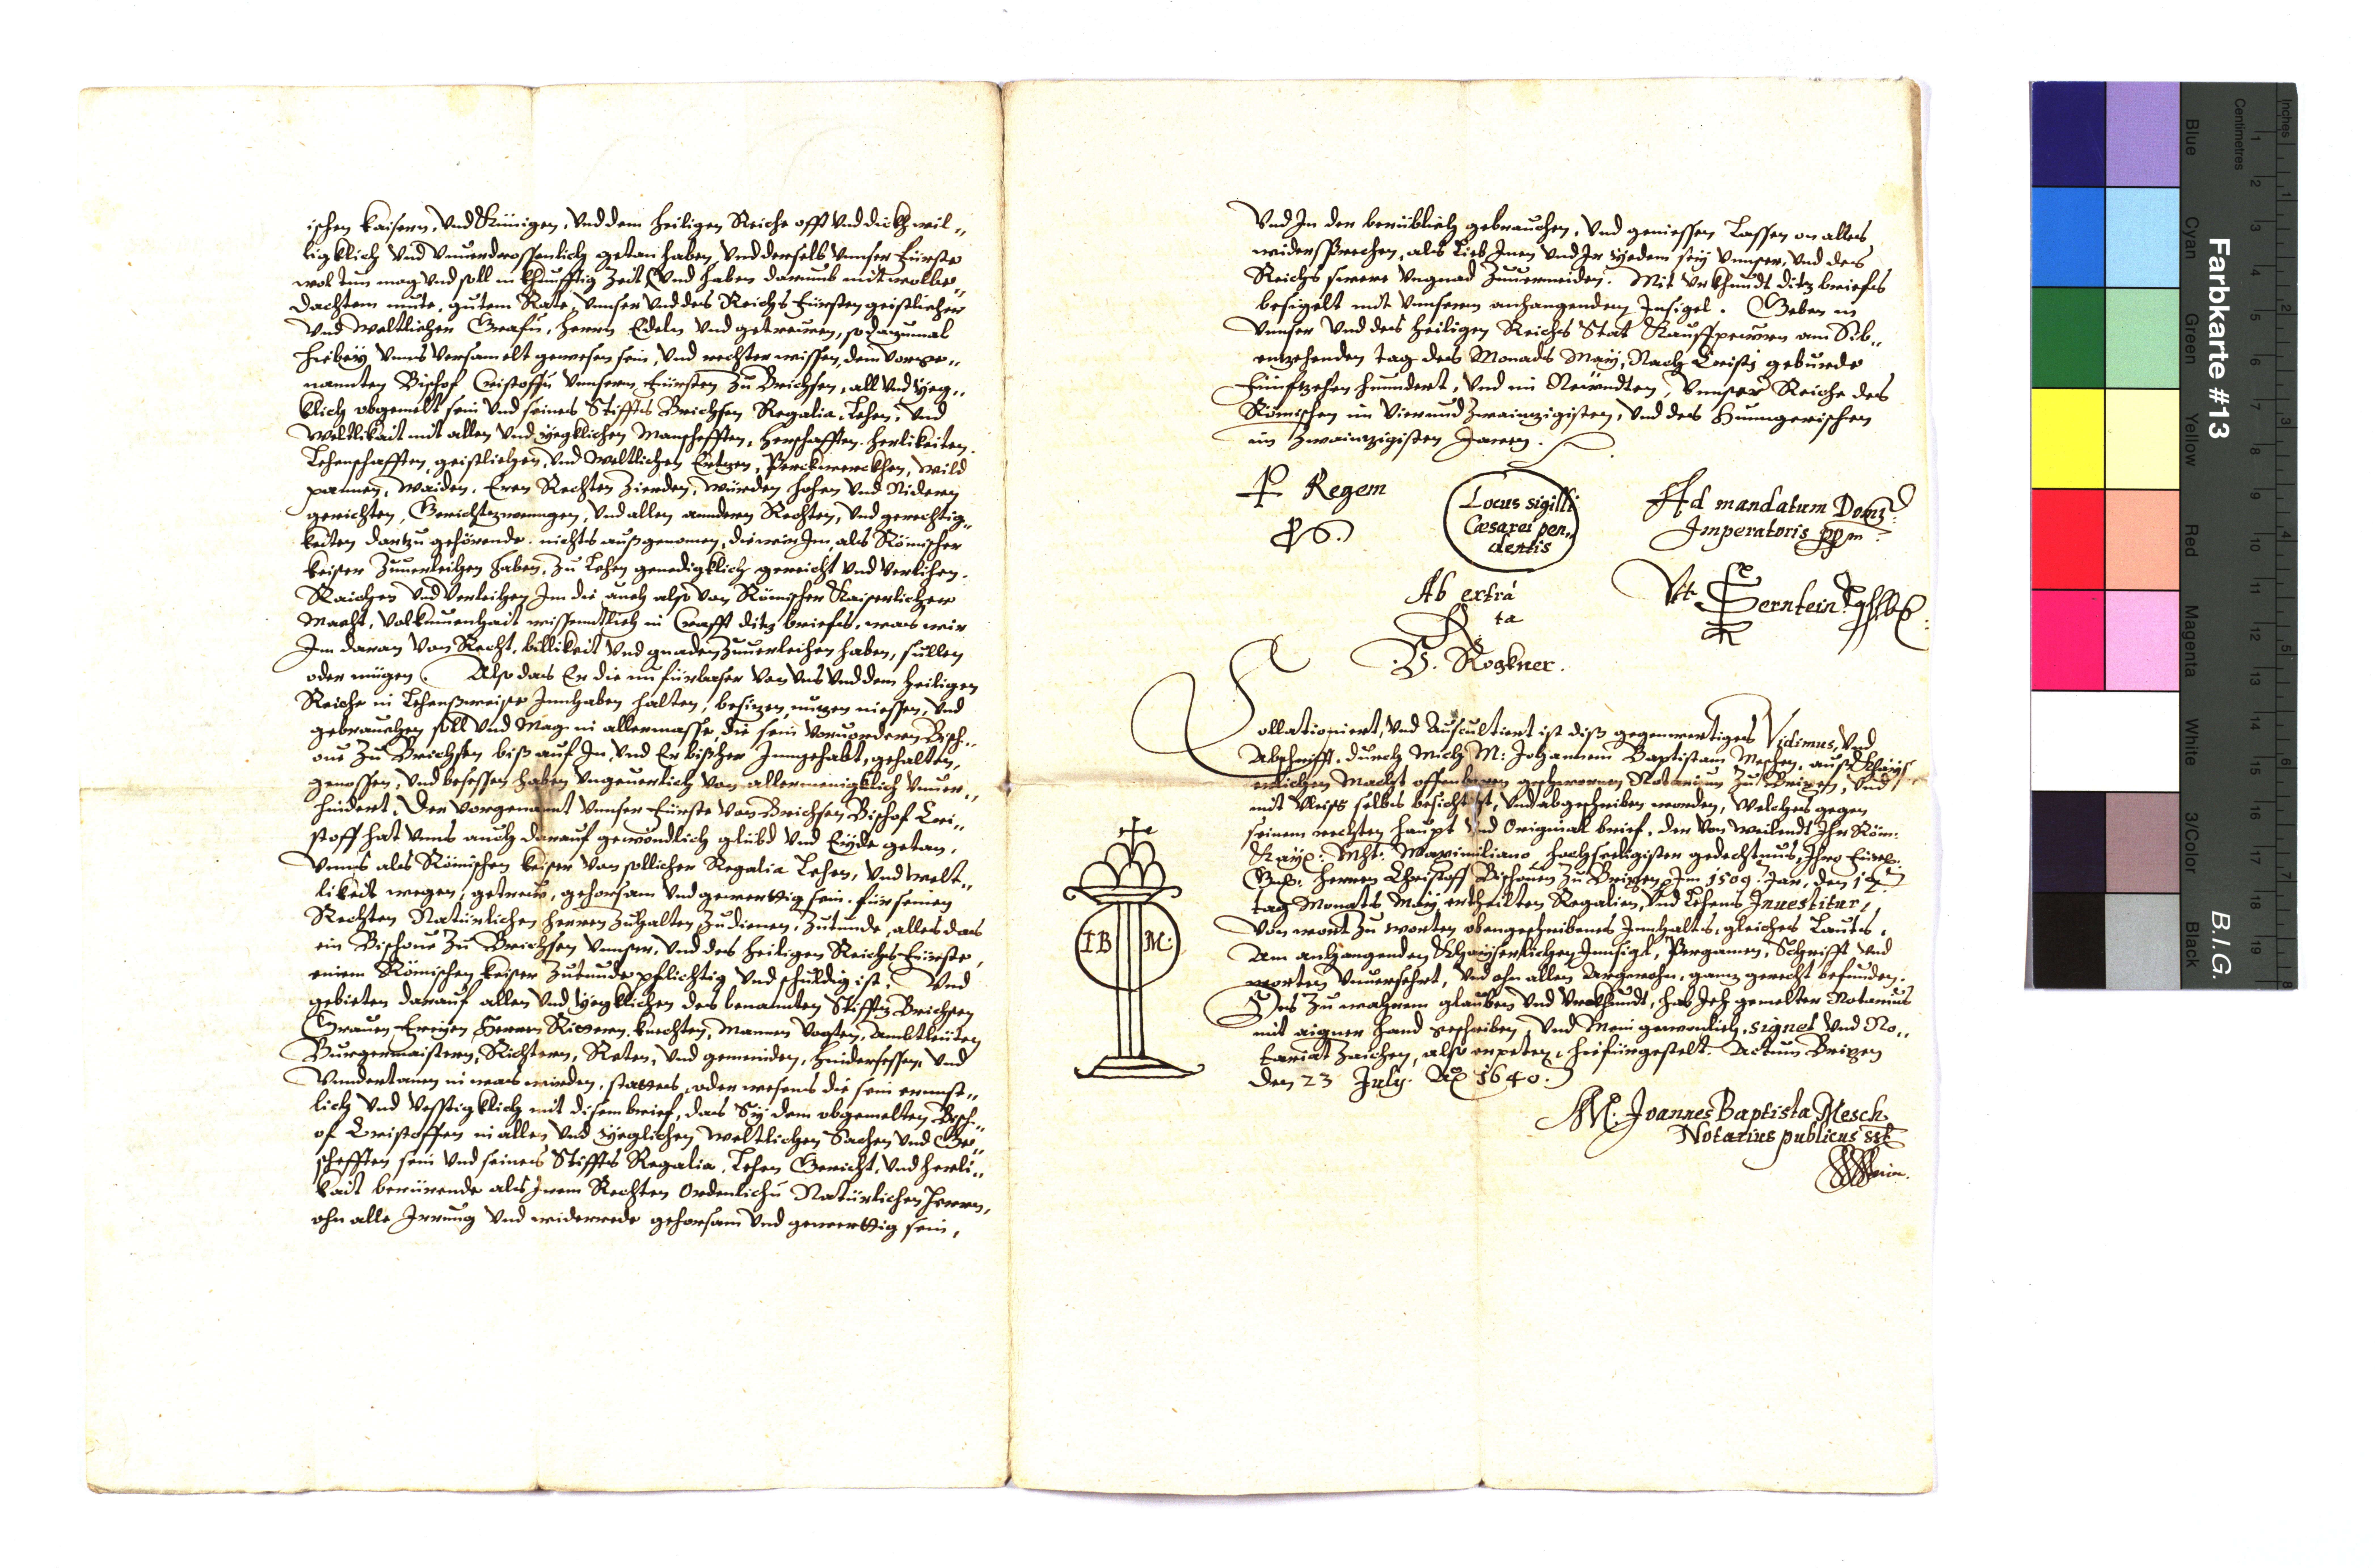 ischen kaisern, Und Künigen, Und dem heiligen Reiche offt Und dickh wil„
ligklich Und Unuerdrossenlich getan haben, Und derselb Unnser Fürste
wol tun mag Und soll in khunfftig Zeit Und haben darumb mit wolbe„
dachtem mute, gutem Rate, Unnser Und des Reichs Fürsten geistlicher
Und Weltlicher Grafen, Herrn Edeln Und getreuen, so dazumal
hiebey Unns Versamelt gewesen sein, Und rechter wissen, dem Vorge„
nannten Bischof Cristoffen Unnserm Fürsten Zu Brichsen, all Und Yeg„
klich obgemelt sein Und seines Stiffts Brichsen Regalia, Lehen, Und
Weltlikait mit allen Und yegklichen Manschefften, Herschafften. Herlikeiten.
Lehenschafften, geistlichen, Und Weltlichen Ertzen, Perckwerckhen, Wild
pannen, Waiden. Eren Rechten Zierden, Würden hohen Und Nidern
gerichten, Gerichtszwenngen, Und allen anndern Rechten, Und gerechtig„
keiten dartzu gehörende. nichts außgenomen, die wir Im als Römischer
keiser Zuuerleihen haben, Zu Lehen genedigklich gereicht Und Verlihen.
Raichen Und Verleihen Im die auch also Von Römischer Kaiserlicher
Macht, Volkumenhait wissenntlich in Crafft ditz briefes, was wir
Im daran Von Recht, billikeit Und gnaden Zuuerleihen haben, sullen
oder mügen. Also das Er die nu fürbaser Von Uns Und dem heiligen
Reiche in Lehensweise Innhaben halten, besitzen, nutzen niessen, Und
gebrauchen soll Und Mag in allermasse, die sein Voruordern Bisch„
oue Zu Brichsen biß auf In, Und Er bißher Inngehabt, gehalten,
genossen, Und besessen haben Ungeuerlich Von allermenigklich Unuer„
hindert. Der Vorgenannt Unnser Fürste Von Brichsen Bischof Cri„
stoff hat Unns auch darauf gewondlich glübd Und Eyde getan,
Unns als Römischen keiser Von sollicher Regalia Lehen, Und Welt„
likeit wegen, getreu, gehorsam Und gewerttig sein. für seinen
Rechten Natürlichen Herren Zuhalten Zudienen, Zutunde, alles das
ein Bischoue Zu Brichsen Unnser, Und des heiligen Reichs Fürste,
einem Römischen keiser Zutunde pflichtig Und schuldig ist, Und
gebieten darauf allen Und Yegklichen des benannten Stiffts Brichsen
Grauen, Freyen Herrn Rittern. knechten, Mannen Vogten, Ambtleuten
Burgermaistern, Richtern, Reten, Und gemeinden, hindersessen, Und
Unndertanen in was wirden, stattes, oder wesens die sein ernnst„
lich Und Vesstigklich mit disem brief, das Sy dem obgemelten Bisch„
of Cristoffen in allen Und yeglichen Weltlichen Sachen Und Ge„
schefften sein Und seines Stiffts Regalia, Lehen Gericht, Und Herli„
kait berürende als Irem Rechten Ordenlichen Natürlichen Herrn,
ohn alle Irrung Und widerrede gehorsam Und gewerttig sein,
Und In der berüblich gebrauchen, Und geniessen Lassen on alles
widersprechen, als Lieb Inen Und Ir Yedem sey Unnser, Und des
Reichs swere Ungnad Zuuermeiden. Mit Urkhundt ditz briefes
besigelt mit Unnserm anhangenden Insigel. Geben in
Unnser Und des heiligen Reichs Stat Kauffpeuren am Sib„
entzehenden tag des Monads May, Nach Cristy geburde
Fünfftzehen hunndert, Und im Newndten, Unnser Reiche des
Römischen im Vierundzwaintzigisten, Und des Hunngerischen
im Zwaintzigisten Jaren.
P Regem
Locus sigilli
Cæsarei pen„
dentis
Ad mandatum Domj
Imperatoris ppm
Ab extrà
Rta
V. Rogkner.
Serntein
Collationiert, Und Auscultiert ist diß gegenwertiges Vidimus, Und
Abschrifft, durch Mich M: Johannem Baptistam Meschen, auß Khays
erlichen Macht offenbaren geschwornen Notarium Zu Brixen, Und
mit Vleiss selbs besichtist, Und abgeschriben worden, Welches gegen
seinem rechten Haupt Und Original brief, der Von weilendt Ihr Röm:
Kay: Mht: Maximiliano Hochseeligister gedechtnus, Ihro Fürstl:
Gn: Herren Christoff Bischouen Zu Brixen, Im 1509. Jar, den 17
tag Monats May, erthailten Regalien, Und Lehens Inuestitur,
Von wort Zu worten obengeschribenes Innhalts, gleiches Lauts,
Am anhangenden Khayserlichen Innsigl, Pergamen, Schrifft Und
worten Unuersehrt, Und ohn allen Argwohn, gantz gerecht befunden.
Des Zu wahrem glauben Und Urckhundt, hab Ich gemelter Notarius
mit aigner Hand geschriben, Und Mein gewonlich, signet Und No„
tariat Zaichen, also erpeten, hiefürgestelt. Actum Brixen
den 23 July. Aō 1640.
IB M:
M. Joannes Baptista Mesch
Notarius publicus sst
Farbkarte #13
B.I.G.
Inches 1 2 3 4 5 6 7 8
Centimetres 1 2 3 4 5 6 7 8 9 10 11 12 13 14 15 16 17 18 19
Blue Cyan Green Yellow Red Magenta White 3/Color Black